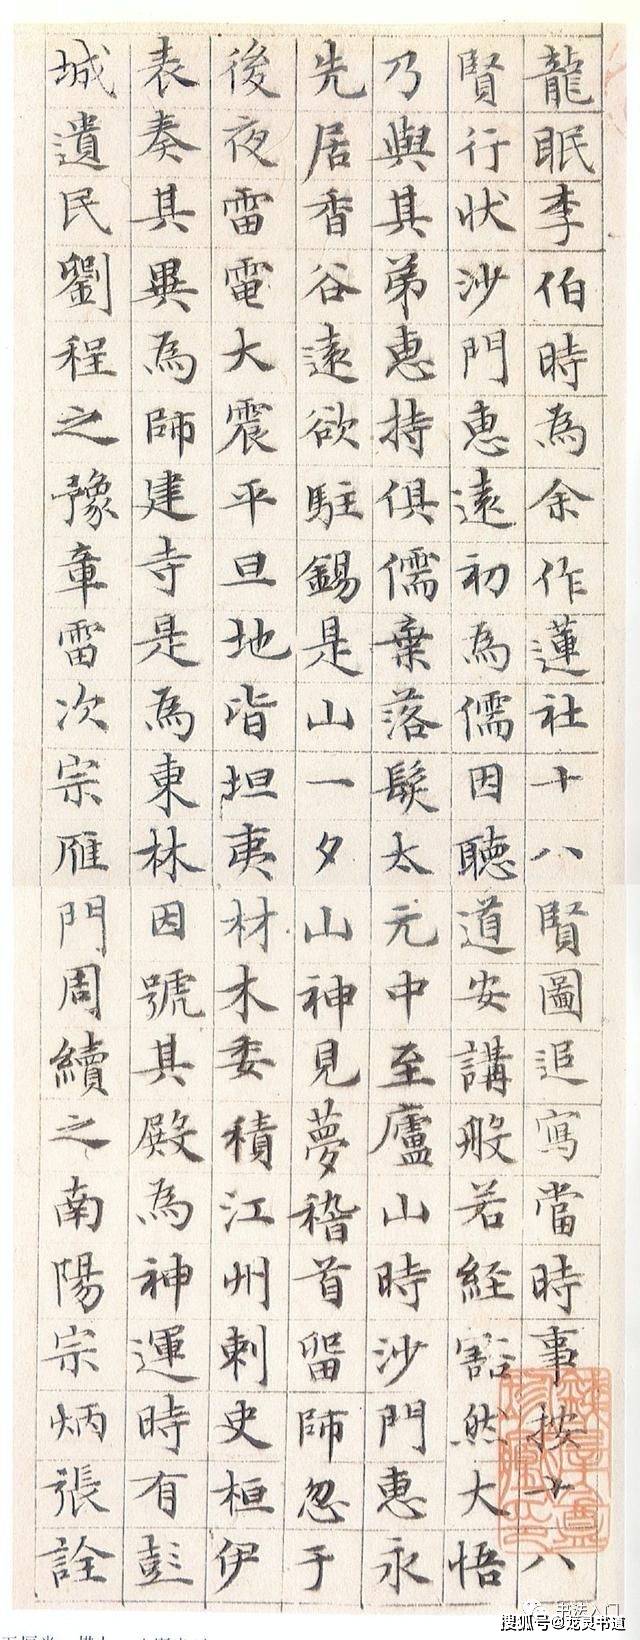 龍眠李伯時為余作蓮社十八賢圖追寫當時事按十八
賢行狀沙門惠遠初為儒因聽道安講般若經豁然大悟
乃與其弟惠持俱儒棄落髮太元中至廬山時沙門惠永
先居香谷遠欲駐錫是山一夕山神見夢稽首留師忽于
後夜雷電大震平旦地皆坦夷材木委積江州刺史桓伊
表奏其異為師建寺是為東林因號其殿為神運時有彭
城遺民劉程之豫章雷次宗雁門周續之南陽宗炳張詮
书法入门
搜狐号@龙灵书道